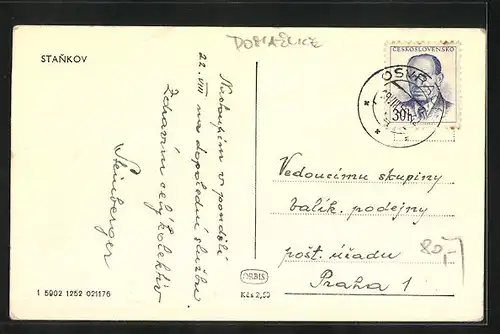 DOMAŽLICE
STAŇKOV
ČESKOSLOVENSKO
30h
Nastoupím v pondělí
22. VIII na dopolední službu.
Zdravím celý kolektiv
Steinberger
Vedoucímu skupiny
balík. podejny
pošt. úřadu
Praha 1
20,-
ORBIS
Kčs 2,50
1 5902 1252 021176